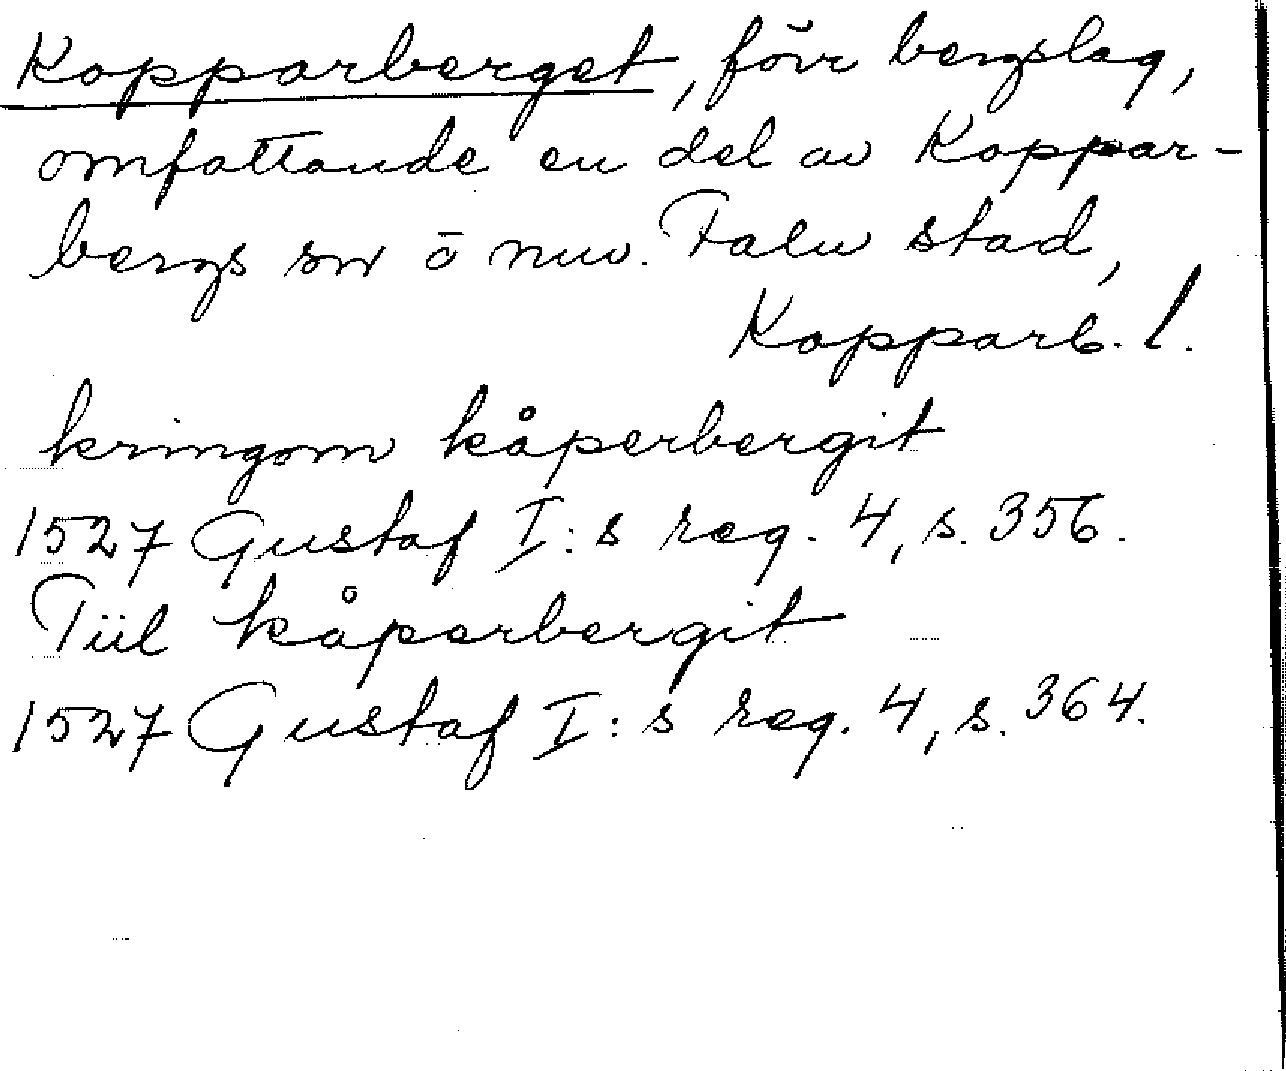 Kopparberget, förr bergslag,
omfattande en del av Koppar-
bergs sn o nuv. Falu stad,
Kopparb. l.
kringom kåperbergit
1527 Gustaf I:s reg. 4, s. 356.
Tiil kåperbergit
1527 Gustaf I:s reg. 4, s. 364.